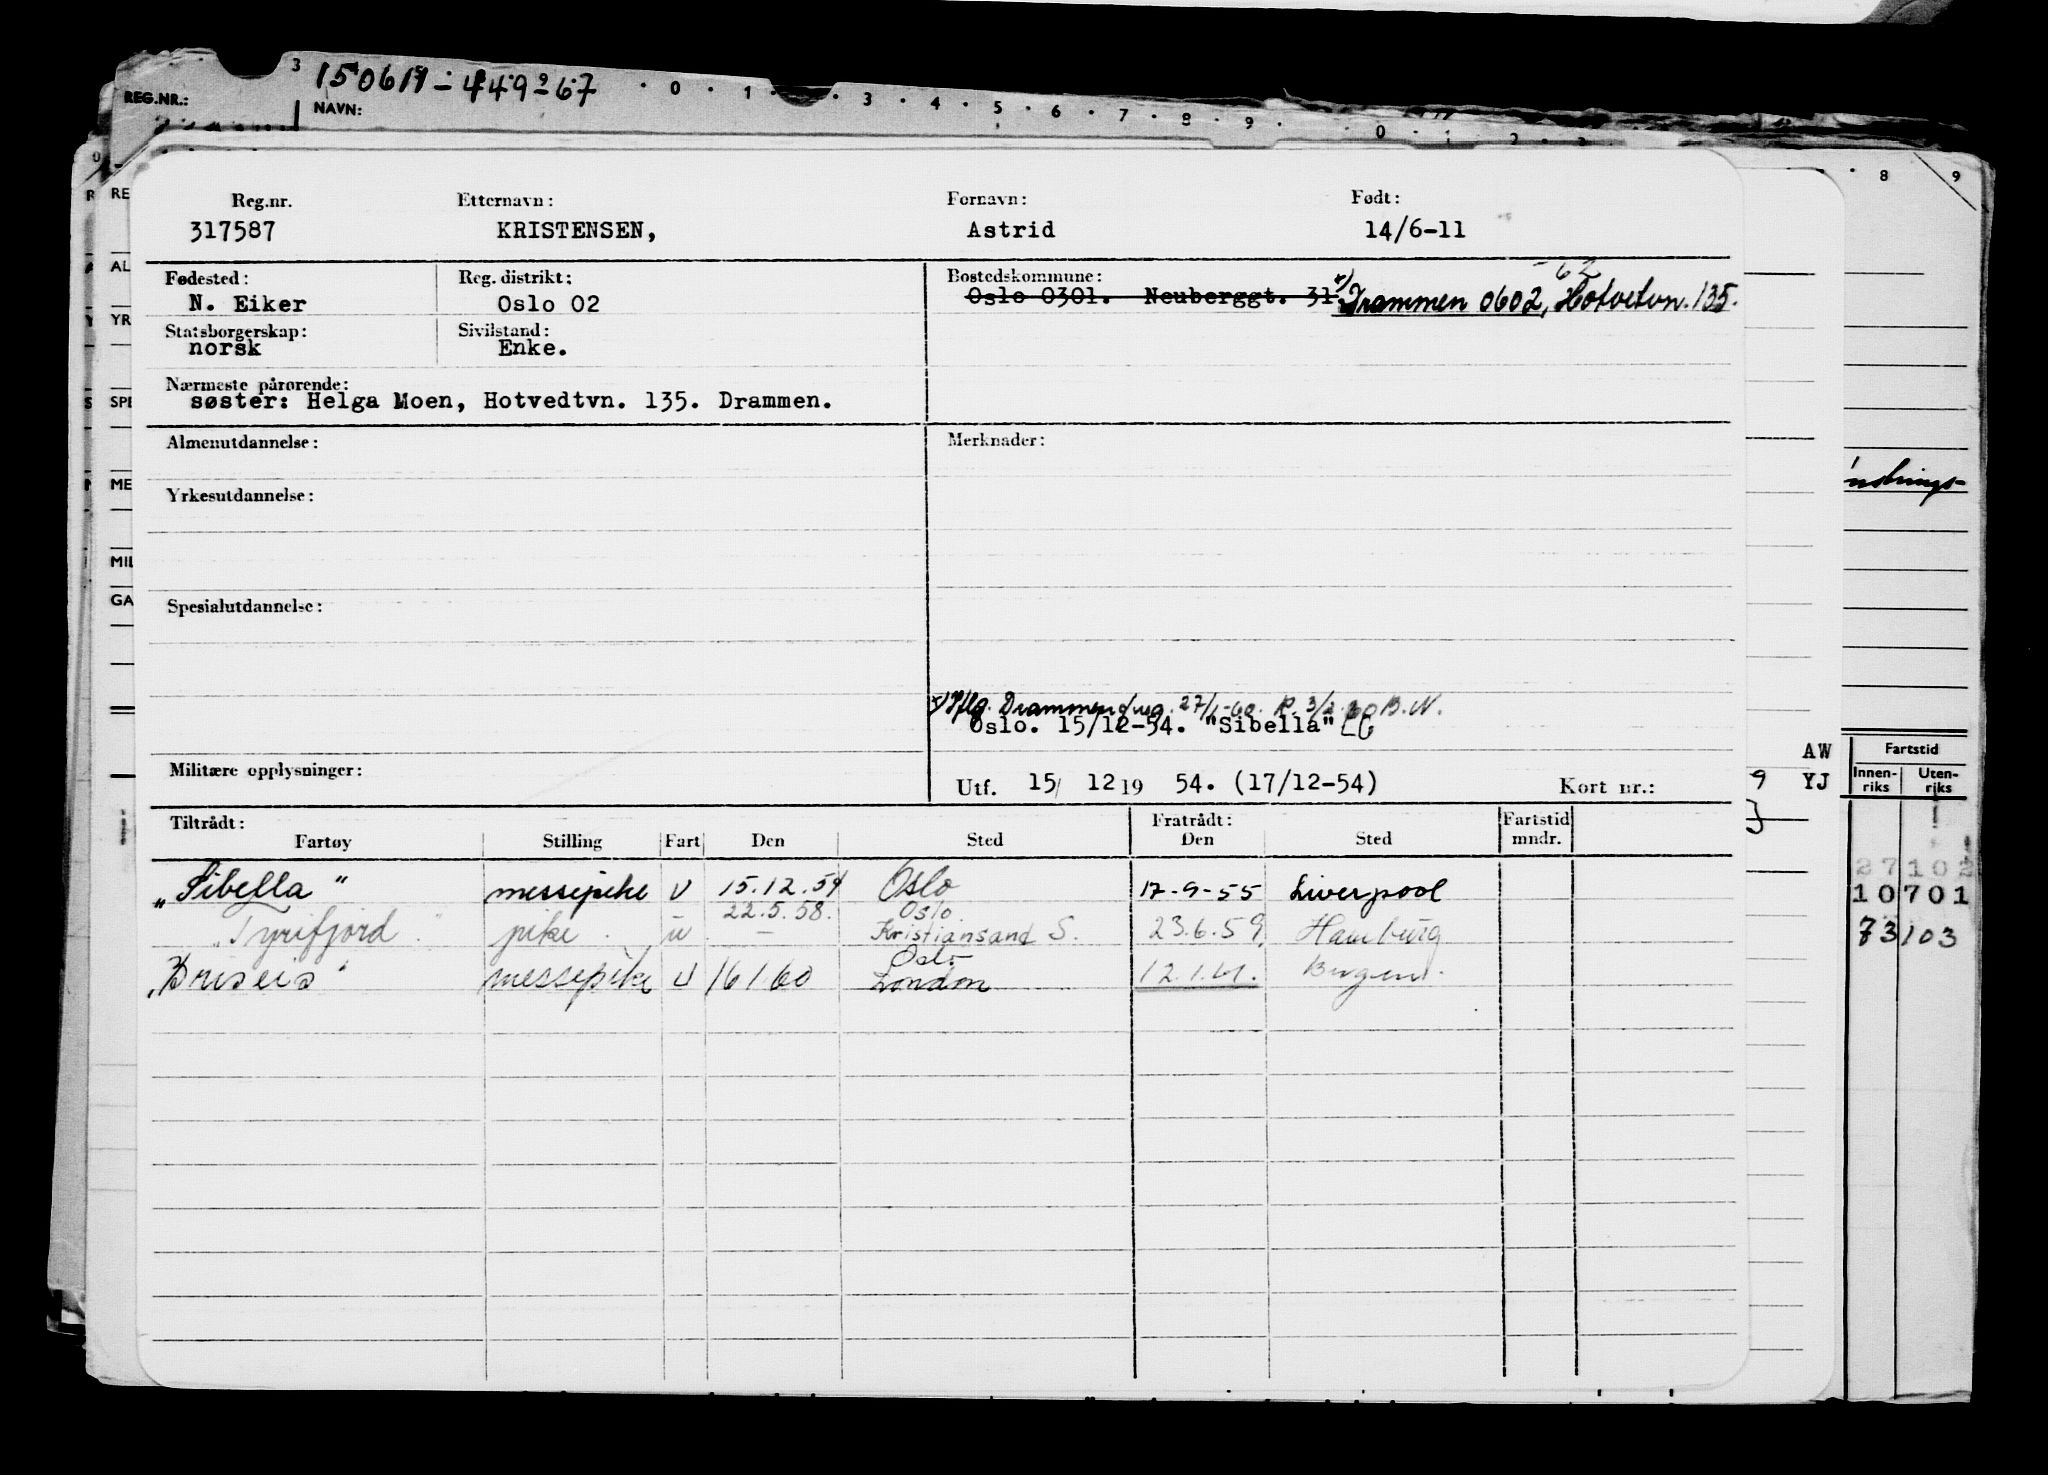 150611-449-67
REG.NR.:
NAVN:
0 1 3 4 5 6 7 8 9 0 1 2 3
8 9
Reg.nr. Etternavn: Fornavn: Født:
317587 KRISTENSEN, Astrid 14/6-11
Fødested: Reg. distrikt: Bostedskommune: -62
N. Eiker Oslo 02 Oslo 0301. Neuberggt. 31. x) Drammen 0602, Hotvetvn. 135.
Statsborgerskap: Sivilstand:
norsk Enke.
Nærmeste pårørende:
søster: Helga Moen, Hotvedtvn. 135. Drammen.
Almenutdannelse: Merknader:
Yrkesutdannelse:
Spesialutdannelse:
x) Iflg. Drammen 27/1-60. R. 3/2-60 B.N.
Oslo. 15/12-54. "Sibella"
Militære opplysninger:
Utf. 15/ 12 19 54. (17/12-54) Kort nr.:
Tiltrådt: Fratrådt: Fartstid
Fartøy Stilling Fart Den Sted Den Sted mndr.
"Sibella" messepike U 15.12.54 Oslo 17-9-55 Liverpool
22.5.58. Oslo
"Tyrifjord" pike. u - Kristiansand S. 23.6.59. Hamburg
Oslo
"Briseis" messepike U 16 1 60 London 12.1.61. Bergen.
RE
AL
YR
SPE
ME
MIL
GA
AW
9 YJ
Fartstid
Innen-riks Uten-riks
27102
10701
73103